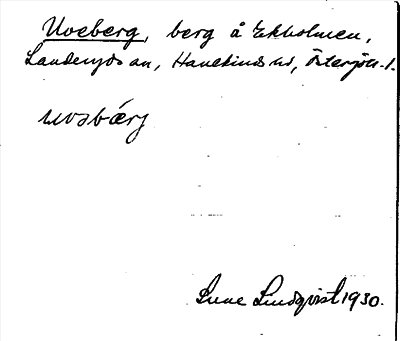 Uveberg, berg å Ekholmen,
Landeryds sn, Hanekinds hd, Östergötl.
uvəbærj
Sune Lindqvist 1930.